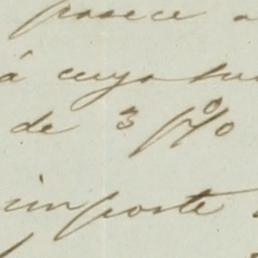 parece a
á cuya su
de 3 p%
importe